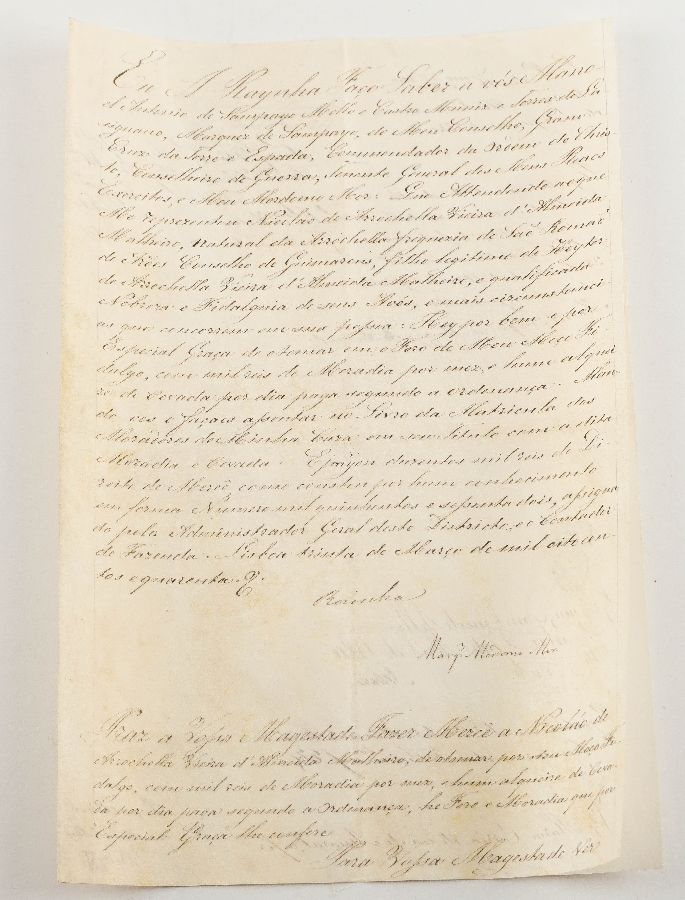 Eu A Raynha Faço Saber a vós Mano-
el Antonio de Sampayo Mello e Castro Muniz e Torres de Lu
zignano, Marquez de Sampayo, do Meu Conselho, Gram
Cruz da Torre e Espada, Commendador da Ordem de Chris-
to, Conselheiro de Guerra, Tenente General dos Meus Reaes
Exercitos, e Meu Mordomo Mór: Que Attendendo ao que
Me reprezentou Nicoláo de Arrochella Vieira d'Almeida
Malheiro, natural da Arrochella freguezia de São Romaõ
de Concelho de Guimaraens, filho legitimo de Heytor
de Arrochella Vieira d'Almeida Malheiro, e qualificada
Nobreza e Fidalguia de seus Avós, e mais circumstanci-
as que concorrem em sua pessoa: Hey por bem e por
Especial Graça de o tomar em o Foro de Meu Moço Fi
dalgo, com mil reis de Moradia por mez, e hum alquei
re de Cevada por dia paga segundo a ordenança. Man-
do vos o façaes apontar no Livro da Matricula dos
Moradores da Minha Caza em seu titulo com a dita
Moradia e Cevada. E pagou duzentos mil reis de Di
reito de Mercê como constou por hum conhecimento
em forma Numero mil quinhentos e sessenta dois, assigna
do pelo Administrador Geral deste Districto, e o Contador
de Fazenda. Lisboa trinta de Março de mil oito cen-
tos e quarenta.
Rainha
Marq.z Mordomo Mór
Praz a Vossa Magestade Fazer Mercê a Nicoláo de
Arrochella Vieira d'Almeida Malheiro, de o tomar por Seu Moço Fi
dalgo, com mil reis de Moradia por mez, e hum alqueire de Ceva-
da por dia paga segundo a Ordenança, he Foro e Moradia que por
Especial Graça lhe confere
Para Vossa Magestade Ver